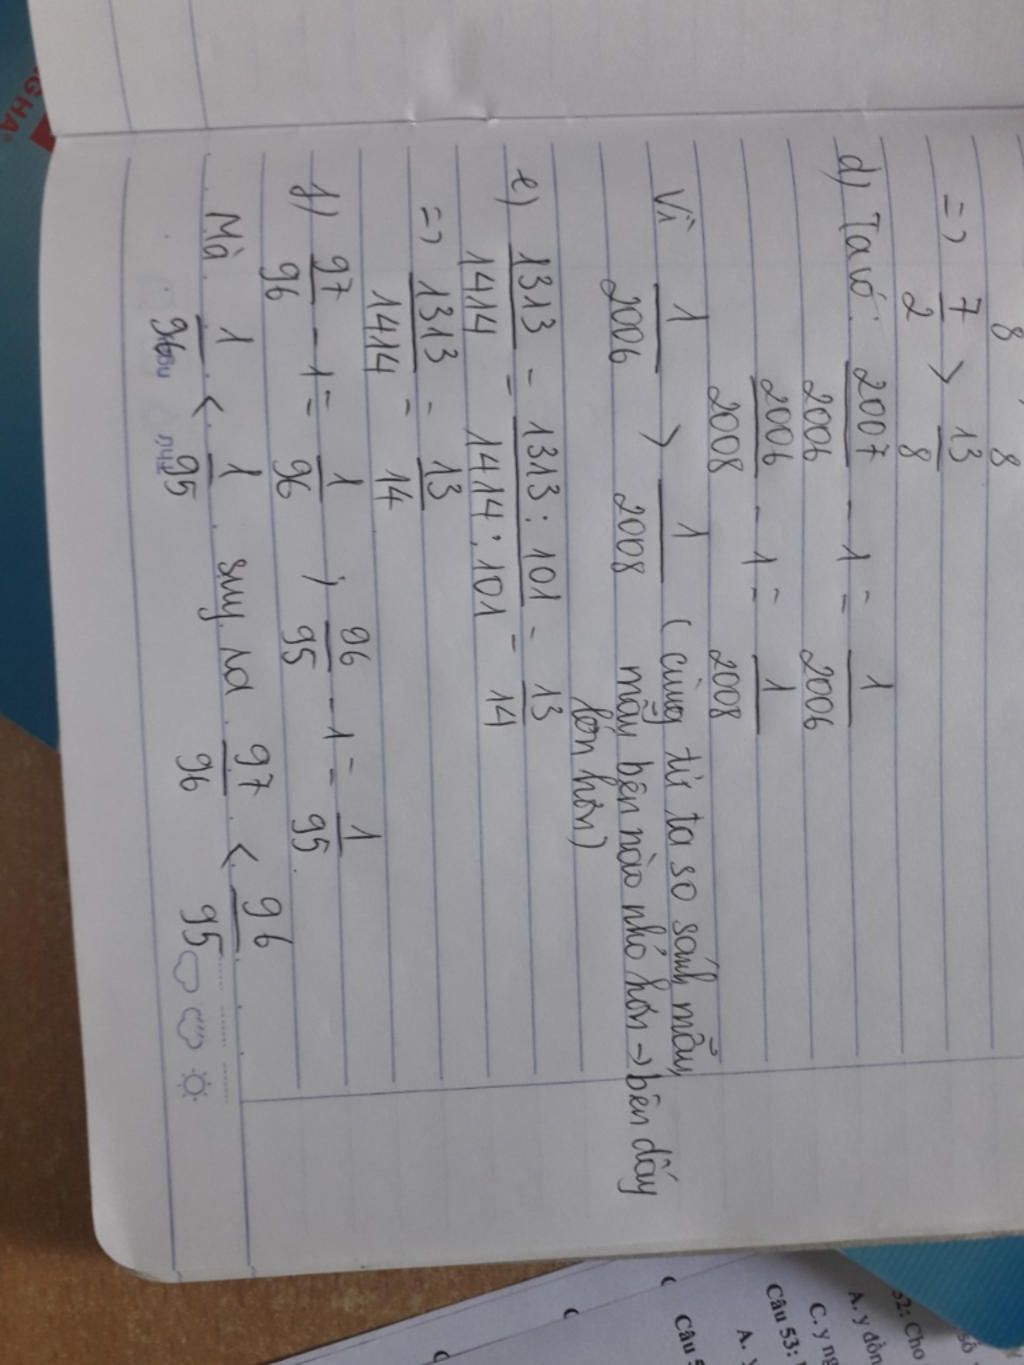 8 8
=> 7/2 > 13/8
d) Ta có: 2007/2006 - 1 = 1/2006
2006/2008 - 1 = 1/2008
Vì 1/2006 > 1/2008 (cùng tử ta so sánh mẫu,
mẫu bên nào nhỏ hơn → bên đấy
lớn hơn)
e) 1313/1414 = 1313:101/1414:101 = 13/14
=> 1313/1414 = 13/14
f) 97/96 - 1 = 1/96 ; 96/95 - 1 = 1/95
Mà 1/96 < 1/95 suy ra 97/96 < 96/95
52: Cho
A. y đồn
C. y ng
Câu 53:
A.
Câu 5
C
C
C